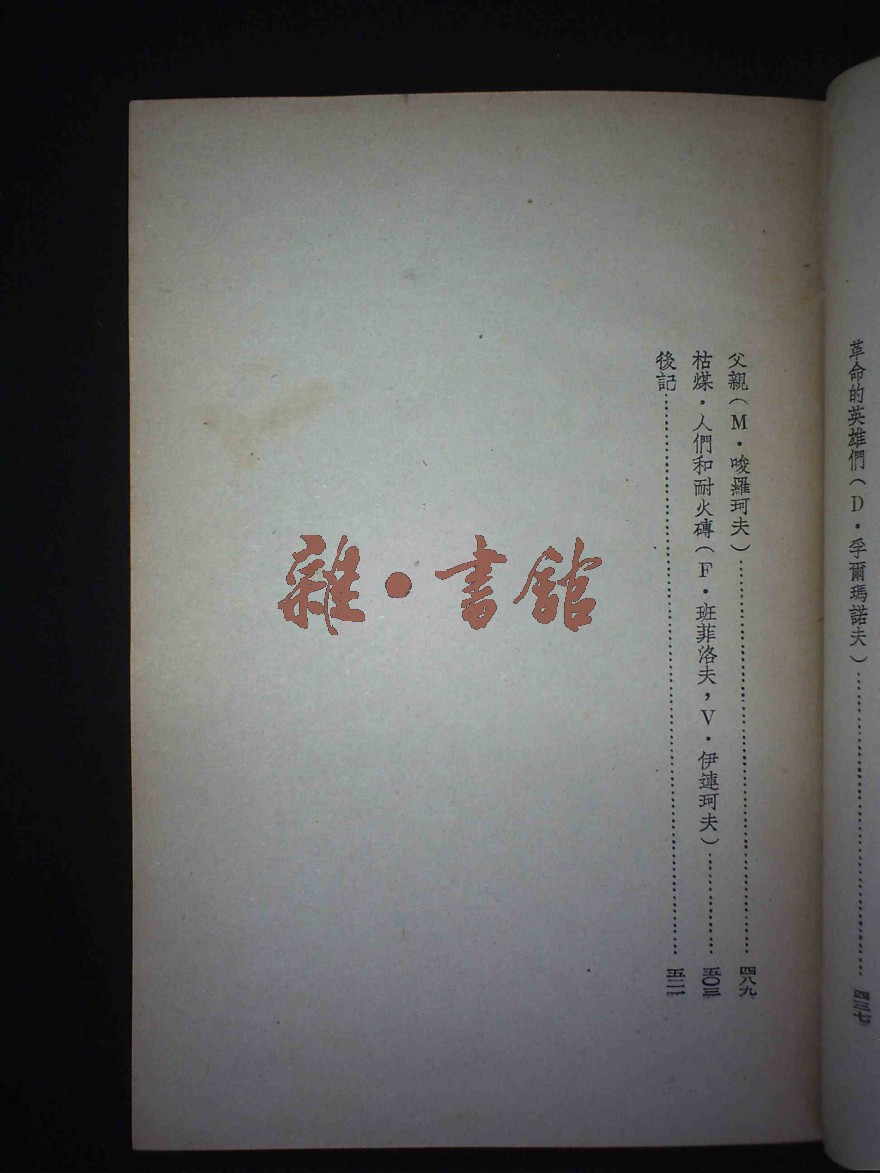 革命的英雄們（D·孚爾瑪諾夫）……四三七
父親（M·唆羅珂夫）……四八九
枯煤·人們和耐火磚（F·班菲洛夫，V·伊連珂夫）……五〇三
後記……五二一
雜·書館